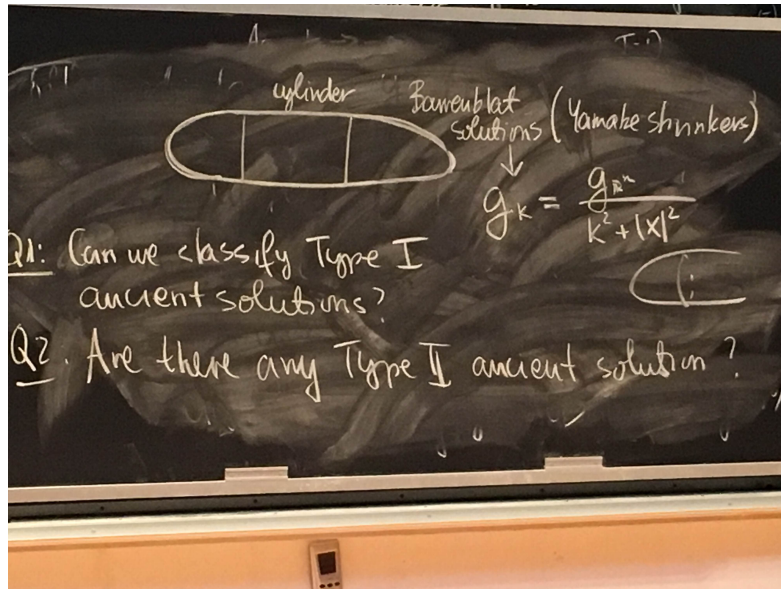 cylinder
Barrenblat
solutions (Yamabe shrinkers)
↓
g_k = g_{ℝ^n} / (k² + |x|²)
Q1: Can we classify Type I
ancient solutions?
Q2. Are there any Type II ancient solution?